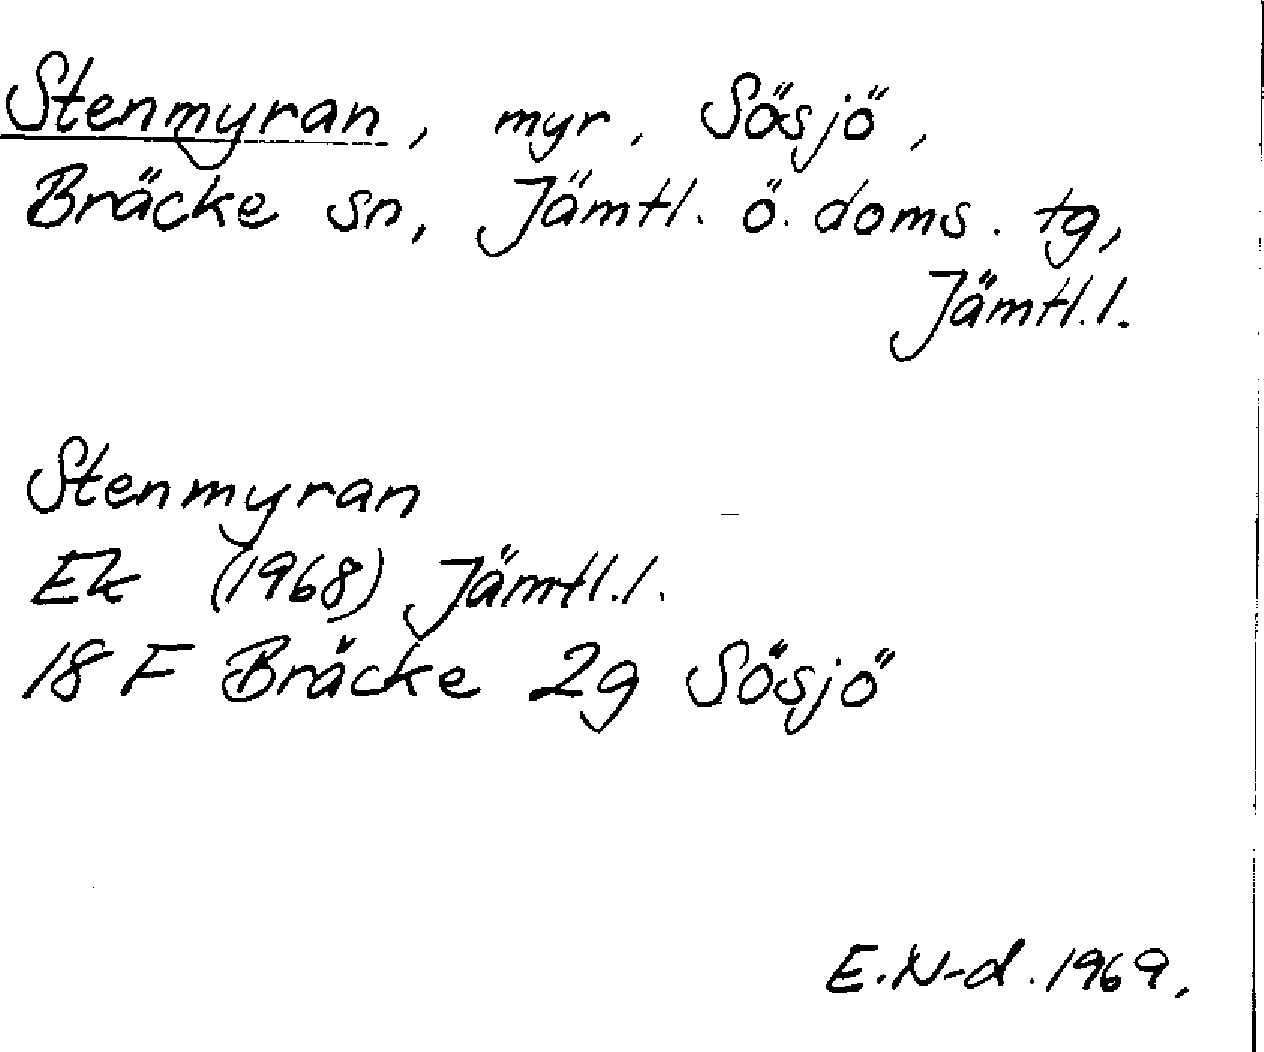 Stenmyran, myr, Sösjö,
Bräcke sn, Jämtl. ö. doms. tg,
Jämtl.l.
Stenmyran
Ek (1968) Jämtl.l.
18 F Bräcke 2g Sösjö
E.N-d. 1969.